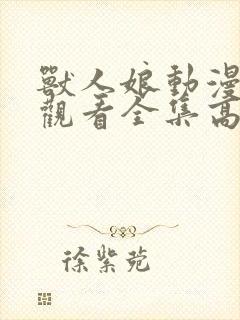 獸人娘動漫
觀看全集高
徐紫菀